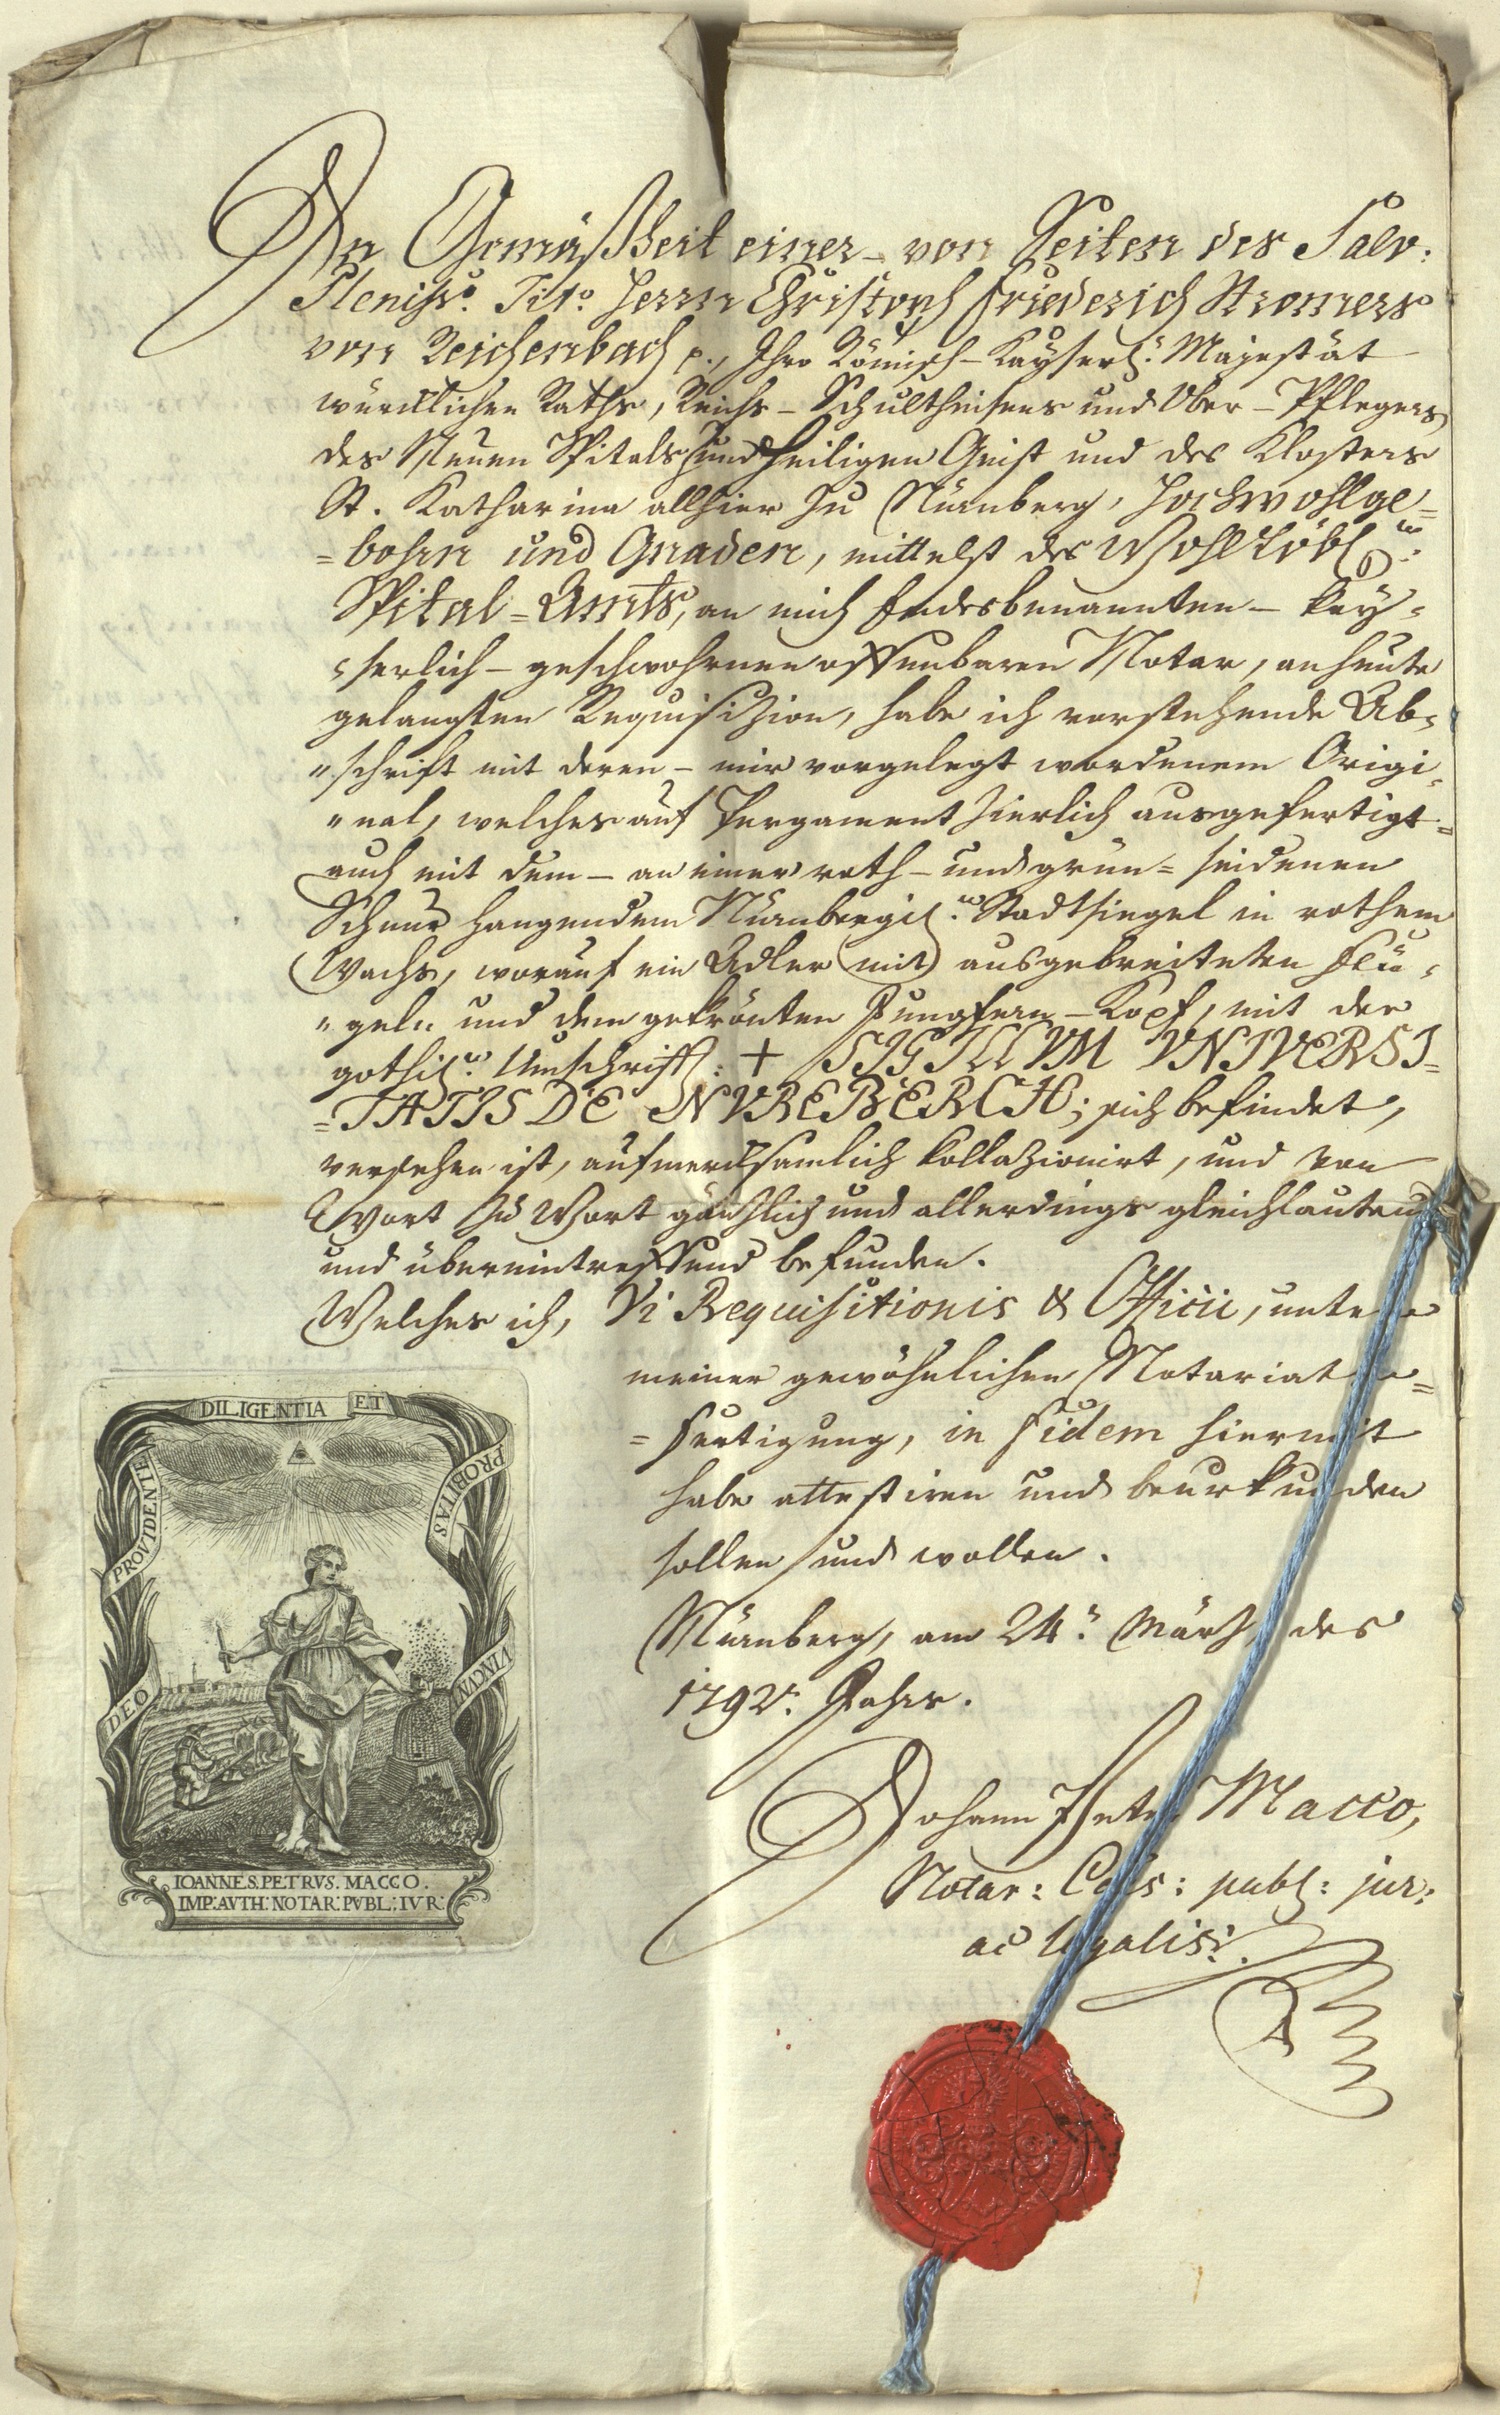 In Gemäßheit einer - von Seiten des Salv:
Pleniss.º Tit.º Herrn Christoph Friederich Stromers
von Reichenbach p., Ihro Römisch-Kayserl.n Majestät
würcklichen Raths, Reichs-Schultheisens und Ober-Pflegers
des Neuen Spitals zum Heiligen Geist und des Klosters
St. Katharina allhier zu Nürnberg, Hochwohlge=
=bohrn und Gnaden, mittelst des Wohllöbl.n
Spital=Amts, an mich Endesbenannten - Kay=
=serlich-geschwohrnen offenbaren Notar, anheute
gelangten Requisizion, habe ich vorstehende Ab=
"schrift mit deren - mir vorgelegt wordenem Origi=
"nal, welches auf Pergament zierlich ausgefertigt=
auch mit dem - an einer roth-und grün=seidenen
Schnur hangendem Nürnbergis.n Stadtsiegel in rothem
Wachs, worauf ein Adler mit ausgebreiteten Flü=
"geln und dem gekrönten Jungfern-Kopf, mit der
gothis.n Umschrift: + SIGILLVM VNIVERSI=
=TATIS DE NVREBERCH; sich befindet,
versehen ist, aufmercksamlich kollazionirt, und von
Wort zu Wort gänzlich und allerdings gleichlautend
und übereintreffend befunden.
Welches ich, Vi Requisitionis & Officii, unter
meiner gewöhnlichen Notariats=
=Fertigung, in Fidem hiermit
habe attestiren und beurkunden
sollen und wollen.
Nürnberg, am 24.n März des
1792.n Jahrs.
Johann Peter Macco,
Notar: Caes: publ: jur:
ac legalis:
DEO PROVIDENTE DILIGENTIA ET PROBITAS VINCUN
IOANNES. PETRVS. MACCO.
IMP: AVTH: NOTAR: PVBL: IVR: